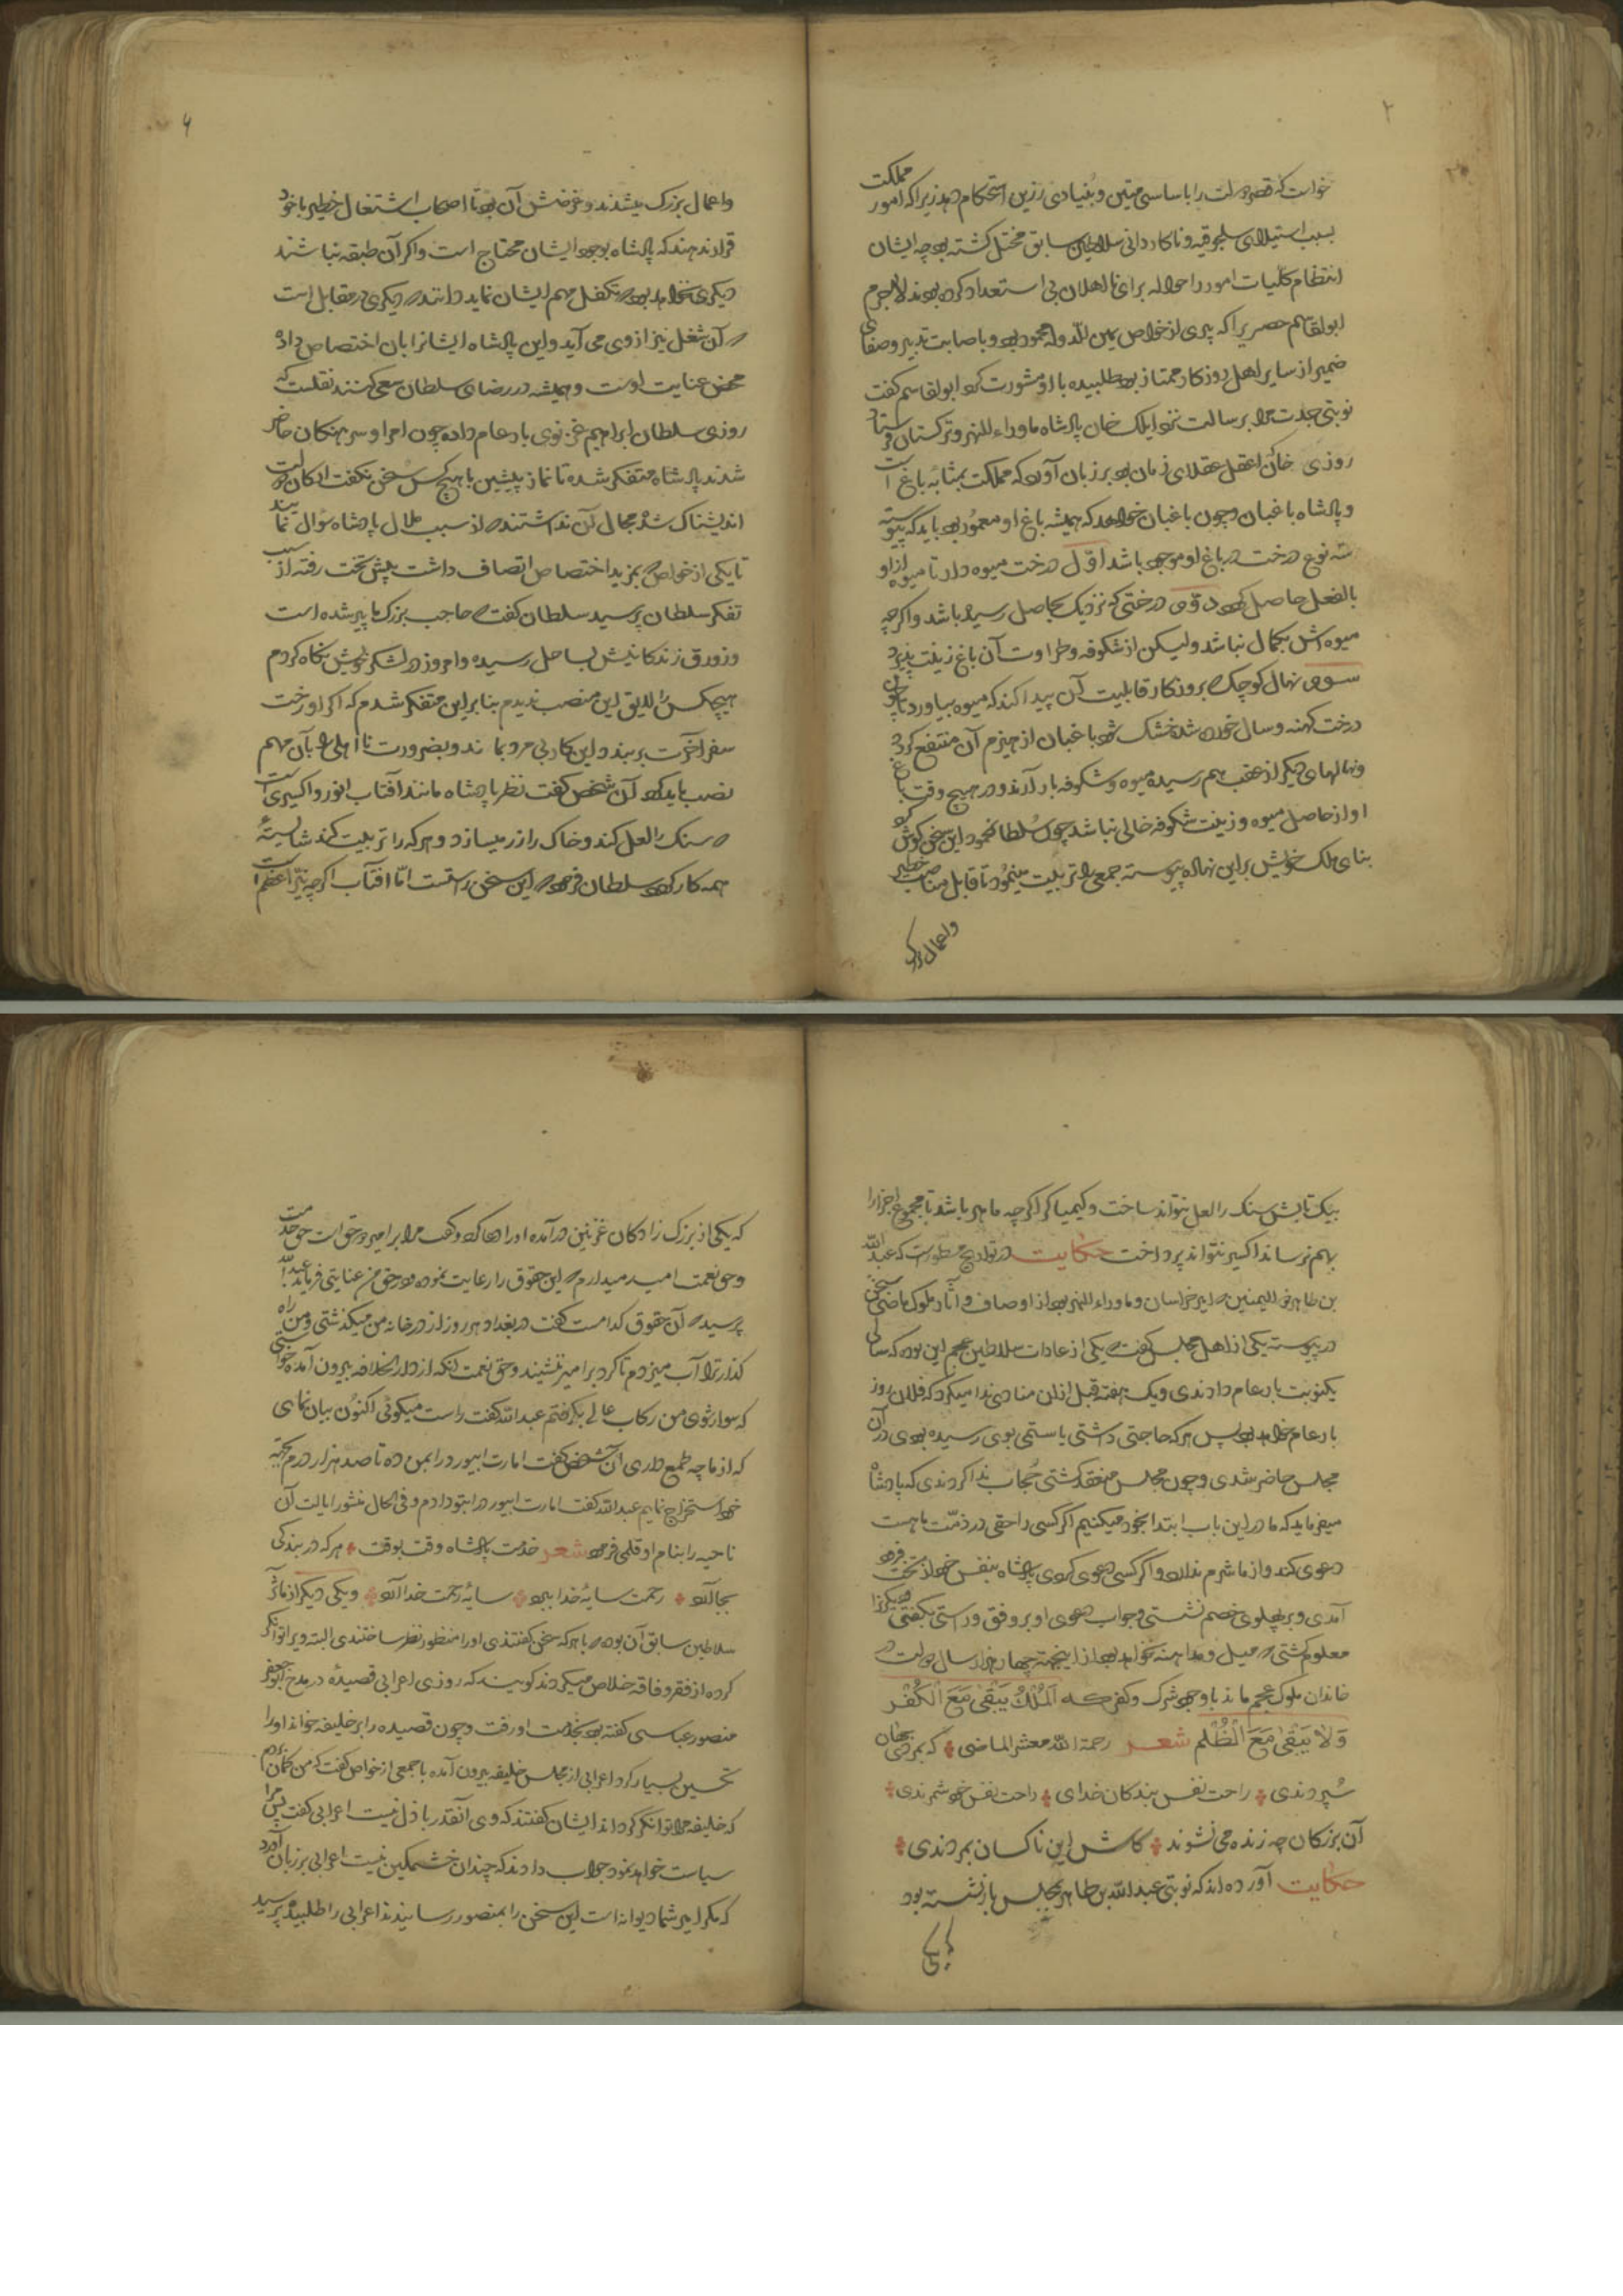 ۲
خواست که قصر دولت را باساسی متین و بنیادی رزین استحکام دهد زیرا که امور مملکت
بسبب استیلای سلجوقیه و ناکاردانی سلاطین سابق مختل کشته بود چه ایشان
انتظام کلیات امور را حواله برای نااهلان بی استعداد کرده بودند لاجرم
ابولقاسم حصیریرا که پیری از خواص یمین الدوله محمود بود و باصابت تدبیر و صفای
ضمیر از سایر اهل روزکار ممتاز بود طلبیده با او مشورت کرد ابولقاسم کفت
نوبتی جدت مرا برسالت نزد ایلک خان پادشاه ماوراء النهر و ترکستان فرستاد
روزی خان که اعقل عقلای زمان بود بر زبان آورد که مملکت بمثابه باغ است
و پادشاه باغبان و چون باغبان خواهد که همیشه باغ او معمور بود باید که پیوسته
سه نوع درخت در باغ او موجود باشد اول درخت میوه دار تا میوه از او
بالفعل حاصل کند دوم درختی که نزدیک بحاصل رسیده باشد و اکرچه
میوه اش بکمال نباشد ولیکن از شکوفه و طراوت آن باغ زینت پذیرد
سوم نهال کوچک که بروزکار قابلیت آن پیدا کند که میوه بیاورد تا چون
درخت کهنه و سال خورده شده خشک شود باغبان از هیزم آن منتفع کردد
و نهالهای دیکر از عقب هم رسیده میوه و شکوفه بار آرند و در هیچ وقت باغ
او از حاصل میوه و زینت شکوفه خالی نباشد چون سلطان محمود این سخن کوش کرد
بنای ملک خویش بر این نهاده پیوسته جمعی را تربیت مینمود تا قابل مناصب خطیر
واعمال بزرک
۴
واعمال بزرک میشدند و غرضش آن بود تا اصحاب اشتغال خطیر با خود
قرار ندهند که پادشاه بوجود ایشان محتاج است و اکر آن طبقه نباشند
دیکری نتواند بود که تکفل مهم ایشان نماید و دانند که دیکری در مقابل است
که آن شغل نیز از وی می آید و این پادشاه ایشانرا بان اختصاص داده
محض عنایت اوست و همیشه در رضای سلطان سعی کنند نقلست که
روزی سلطان ابراهیم غزنوی بار عام داده چون امرا و سرهنکان حاضر
شدند پادشاه متفکر شده تا نماز پیشین با هیچ کس سخن نکفت ارکان دولت
اندیشناک شده مجال آن نداشتند که از سبب ملال پادشاه سؤال نمایند
تا یکی از خواص که بمزید اختصاص اتصاف داشت پیش تخت رفته از سبب
تفکر سلطان پرسید سلطان کفت که حاجب بزرک ما پیر شده است
و زورق زندکانیش بساحل رسیده و امروز در لشکر خویش نکاه کردم
هیچکس را لایق این منصب ندیدم بنابراین متفکر شدم که اکر او رخت
سفر آخرت بربندد این کار بی مرد بماند و بضرورت نااهلی را بآن مهم
نصب باید کرد آن شخص کفت نظر پادشاه مانند آفتاب انور و اکسیر است
که سنک را لعل کند و خاک را زر میسازد و هرکه را تربیت کند شایسته
همه کار کردد سلطان فرمود که این سخن راست است اما افتاب اکرچه نیر اعظم است
بیک تابش سنک را لعل نتواند ساخت و کیمیاکر اکرچه ماهر باشد تا مجموع اجزا را
بهم نرساند اکسیر نتواند پرداخت حکایت در تواریخ مسطورست که عبد الله
بن طاهر ذو الیمینین که امیر خراسان و ماوراء النهر بود از اوصاف و آثار ملوک ماضی سخن
در پیوسته یکی از اهل مجلس کفت که یکی از عادات سلاطین عجم این بوده که سالی
یکنوبت بار عام دادندی و یک هفته قبل ازان منادی ندا میکرد که فلان روز
بار عام خواهد بود پس هرکه حاجتی داشتی یا ستمی بوی رسیده بودی در آن
مجلس حاضر شدی و چون مجلس منعقد کشتی حجاب ندا کردندی که پادشاه
میفرماید که ما در این باب ابتدا بخود میکنیم اکر کسی را حقی در ذمت ما هست
دعوی کند و از ما شرم ندارد و اکر کسی دعوی کردی پادشاه بنفس خود از تخت فرود
آمدی و بر پهلوی خصم نشستی و جواب دعوی او بر وفق و راستی بکفتی و دیکرانرا
معلوم کشتی که میل و مداهنه نخواهد بود از اینجهة چهار هزار سال دولت در
خاندان ملوک عجم ماند با وجود شرک و کفر که اَلْمُلْکُ یَبْقٰی مَعَ الْکُفْرِ
وَلَا یَبْقٰی مَعَ الْظُلْمِ شعر رحمة الله معشر الماضی که بمردی جهان
سپردندی راحت نفس بندکان خدای راحت نفس خود شمردندی
آن بزرکان چه زنده می نشوند کاش این ناکسان بمردندی
حکایت آورده اند که نوبتی عبد الله بن طاهر بمجلس بار نشسته بود
که یکی
که یکی از بزرک زادکان غزنین درآمده او را دعا کرد و کفت مرا بر امیر دو حق است حق خدمت
و حق نعمت امید میدارم که این حقوق را رعایت نموده در حق من عنایتی فرماید عبد الله
پرسید که آن حقوق کدامست کفت در بغداد هر روز از در خانه من میکذشتی و من راه
کذار ترا آب میزدم تا کرد بر امیر ننشیند و حق نعمت آنکه از دار الخلافه بیرون آمده خواستی
که سوار شوی من رکاب عالی بکرفتم عبد الله کفت راست میکوئی اکنون بیان نمای
که از ما چه طمع داری آن شخص کفت امارت ابیورد را بمن ده تا صد هزار درم بجهة
خود استخراج نمایم عبد الله کفت امارت ابیورد را بتو دادم و فی الحال منشور ایالت آن
ناحیه را بنام او قلمی فرمود شعر خدمت پادشاه وقت بوقت هرکه در بندکی
بجا آرد رحمت سایه خدا بیند سایه رحمت خدا آرد و یکی دیکر از مآثر
سلاطین سابق آن بوده که با هرکه سخن کفتندی او را منظور نظر ساختندی البته ویرا توانکر
کرده از فقر و فاقه خلاص میکردند کویند که روزی اعرابی قصیده در مدح ابو جعفر
منصور عباسی کفته بود بخدمت او رفت و چون قصیده را بر خلیفه خواند او را
تحسین بسیار کرد اعرابی از مجلس خلیفه بیرون آمده با جمعی از خواص کفت که من کمان بردم
که خلیفه مرا توانکر کرداند ایشان کفتند که وی آنقدر باذل نیست اعرابی کفت پس مرا
سیاست خواهد نمود جواب دادند که چندان خشمکین نیست اعرابی بر زبان آورد
که مکر امیر شما دیوانه است این سخن را بمنصور رسانیدند اعرابی را طلبیده پرسید